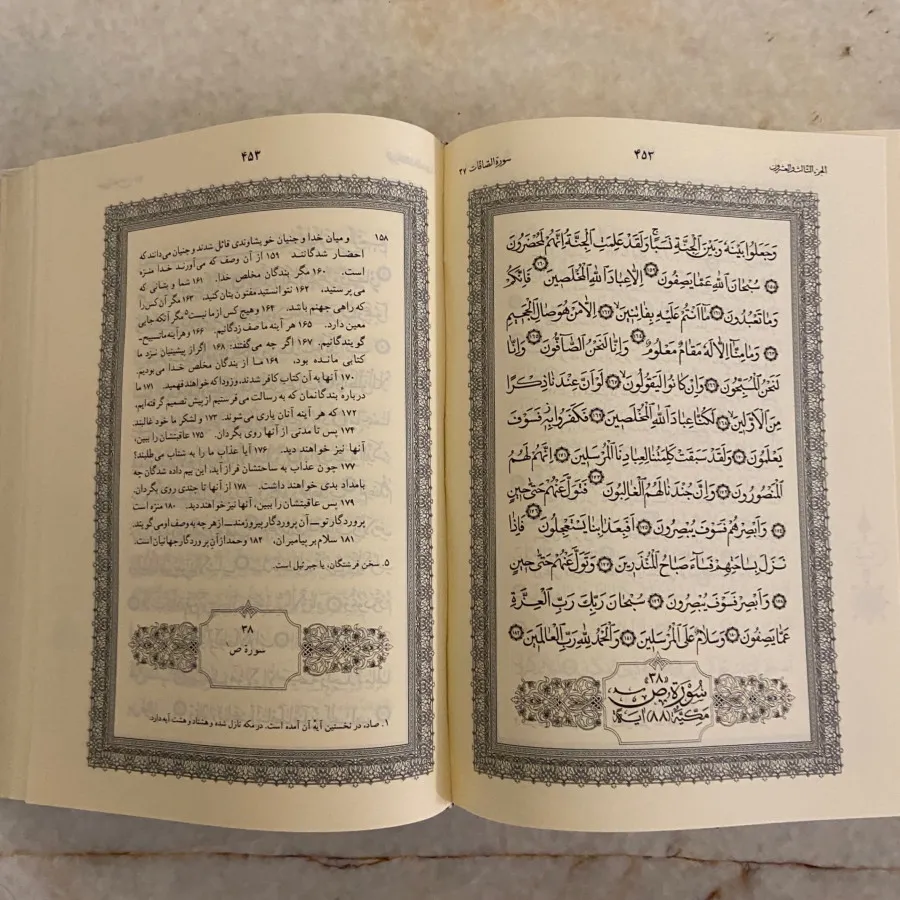 الجزء الثالث والعشرون
۴۵۳
سورة الصّافّات ۳۷
وَجَعَلُوا بَيْنَهُ وَبَيْنَ الْجِنَّةِ نَسَبًا وَلَقَدْ عَلِمَتِ الْجِنَّةُ اِنَّهُمْ لَمُحْضَرُونَ
سُبْحَانَ اللهِ عَمَّا يَصِفُونَ اِلَّا عِبَادَ اللهِ الْمُخْلَصِينَ فَاِنَّكُمْ
وَمَا تَعْبُدُونَ مَا اَنْتُمْ عَلَيْهِ بِفَاتِنِينَ اِلَّا مَنْ هُوَ صَالِ الْجَحِيمِ
وَمَا مِنَّا اِلَّا لَهُ مَقَامٌ مَعْلُومٌ وَاِنَّا لَنَحْنُ الصَّافُّونَ وَاِنَّا
لَنَحْنُ الْمُسَبِّحُونَ وَاِنْ كَانُوا لَيَقُولُونَ لَوْ اَنَّ عِنْدَنَا ذِكْرًا
مِنَ الْاَوَّلِينَ لَكُنَّا عِبَادَ اللهِ الْمُخْلَصِينَ فَكَفَرُوا بِهِ فَسَوْفَ
يَعْلَمُونَ وَلَقَدْ سَبَقَتْ كَلِمَتُنَا لِعِبَادِنَا الْمُرْسَلِينَ اِنَّهُمْ لَهُمُ
الْمَنْصُورُونَ وَاِنَّ جُنْدَنَا لَهُمُ الْغَالِبُونَ فَتَوَلَّ عَنْهُمْ حَتَّى حِينٍ
وَاَبْصِرْهُمْ فَسَوْفَ يُبْصِرُونَ اَفَبِعَذَابِنَا يَسْتَعْجِلُونَ فَاِذَا
نَزَلَ بِسَاحَتِهِمْ فَسَاءَ صَبَاحُ الْمُنْذَرِينَ وَتَوَلَّ عَنْهُمْ حَتَّى حِينٍ
وَاَبْصِرْ فَسَوْفَ يُبْصِرُونَ سُبْحَانَ رَبِّكَ رَبِّ الْعِزَّةِ
عَمَّا يَصِفُونَ وَسَلَامٌ عَلَى الْمُرْسَلِينَ وَالْحَمْدُ لِلهِ رَبِّ الْعَالَمِينَ
«۳۸»
سُورَةُ ص
مَكِّيَّة (۸۸) اية
۴۵۳
۱۵۸ و میان خدا و جنیان خویشاوندی قائل شدند و جنیان می‌دانند که
احضار شدگانند ۱۵۹ از آن وصف که می‌آورند خدا منزه
است. ۱۶۰ مگر بندگان مخلص خدا. ۱۶۱ شما و بتانی که
می‌پرستید، ۱۶۲ نتوانستید مفتون بتان کنید، ۱۶۳ مگر آن کس را
که راهی جهنم باشد. ۱۶۴ و هیچ کس از ما نیست۵ مگر آنکه جایی
معین دارد. ۱۶۵ هر آینه ما صف زدگانیم. ۱۶۶ و هر آینه ما تسبیح-
گویندگانیم. ۱۶۷ اگر چه می‌گفتند: ۱۶۸ اگر از پیشینیان نزد ما
کتابی مانده بود، ۱۶۹ ما از بندگان مخلص خدا می‌بودیم.
۱۷۰ آنها به آن کتاب کافر شدند، و زودا که خواهند فهمید. ۱۷۱ ما
دربارهٔ بندگانمان که به رسالت می‌فرستیم از پیش تصمیم گرفته‌ایم،
۱۷۲ که هر آینه آنان یاری می‌شوند. ۱۷۳ و لشکر ما خود غالبند.
۱۷۴ پس تا مدتی از آنها روی بگردان. ۱۷۵ عاقبتشان را ببین،
آنها نیز خواهند دید. ۱۷۶ آیا عذاب ما را به شتاب می‌طلبند؟
۱۷۷ چون عذاب به ساحتشان فراز آید، این بیم داده شدگان چه
بامداد بدی خواهند داشت. ۱۷۸ از آنها تا چندی روی بگردان.
۱۷۹ پس عاقبتشان را ببین، آنها نیز خواهند دید. ۱۸۰ منزه است
پروردگار تو ــ آن پروردگار پیروزمند ــ از هر چه به وصف او می‌گویند.
۱۸۱ سلام بر پیامبران، ۱۸۲ و حمد از آن پروردگار جهانیان است.
۵. سخن فرشتگان، یا جبرئیل است.
۳۸
سورهٔ ص
۱. صاد، در نخستین آیهٔ آن آمده است. در مکه نازل شده و هشتاد و هشت آیه دارد.